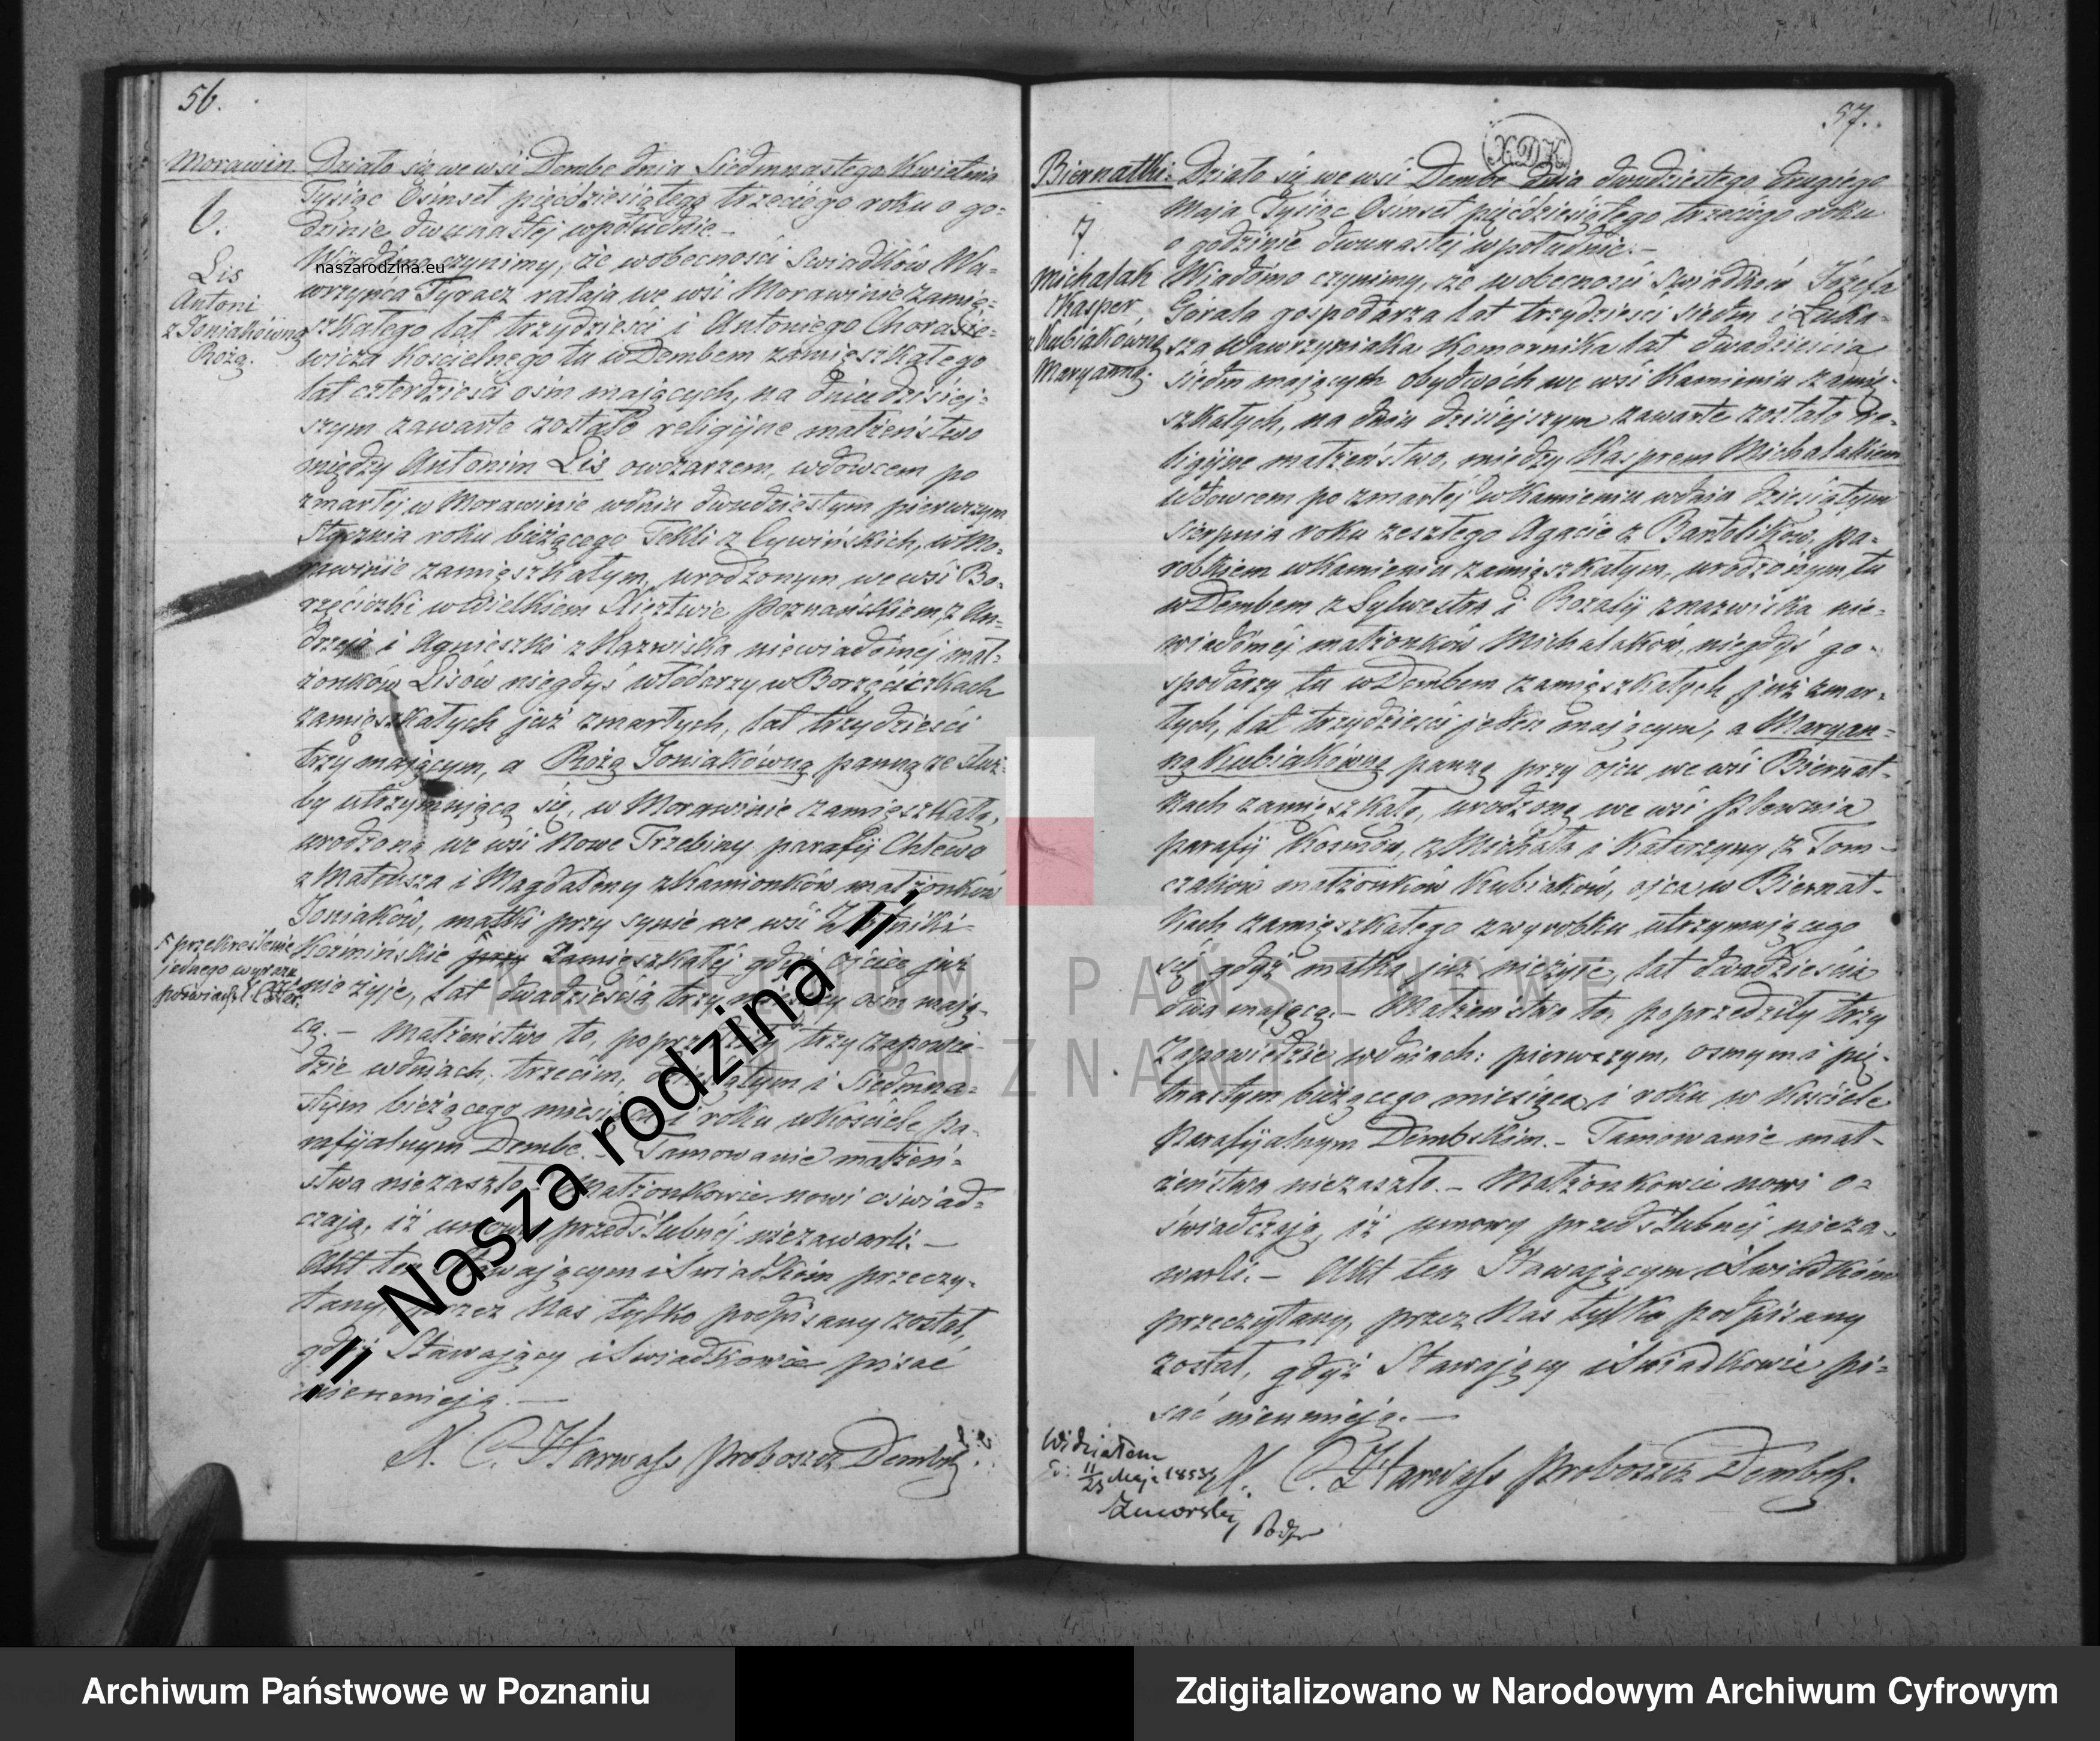 56.
Morawin.
6.
Lis
Antoni
z Joniakówną
Rózą.
Działo się we wsi Dembe dnia Siedmnastego Kwietnia
Tysiąc Osimset pięćdziesiątego trzeciego roku o go=
dzinie dwunastej wpołudnie.—
Wiadomo czynimy, że wobecności Swiadków Wa=
wrzyńca Tyracz rataja we wsi Morawinie zamie=
szkałego lat trzydzieści i Antoniego Chorasie=
wicza Kościelnego tu w Dembem zamieszkałego
lat czterdzieści osm mających, na dniu dzisiej=
szym zawarte zostało religijne małżeństwo
między Antonim Lis owczarzem, wdowcem po
zmarłej w Morawinie wdniu dwudziestym pierwszym
Stycznia roku bieżącego Tekli z Cywińskich, w Mo=
rawinie zamieszkałym, urodzonym we wsi Bo=
rzęciczki w Wielkiem Xięztwie Poznańskiem, z An=
drzeja i Agnieszki z Nazwiska niewiadomej mał=
żonków Lisów niegdyś włodarzy w Borzęciczkach
zamieszkałych już zmarłych, lat trzydzieści
trzy mającym, a Rózą Joniakówną panną ze służ=
by utrzymującą się, w Morawinie zamieszkałą,
urodzoną we wsi Nowe Trzebiny parafii Chlewo
z Mateusza i Magdaleny z Kamionków małżonków
Joniaków, matki przy synie we wsi Złotniki
Koźmińskie przy Zamieszkałej gdyż ojciec już
nie żyje, lat dwadzieścia trzy miesięcy osm mają=
cą.— Małżeństwo to, poprzedziły trzy zapowie=
dzie wdniach; trzecim, dziesiątym i Siedmna=
stym bieżącego miesiąca i roku w Kościele pa=
rafijalnym Dembe.— Tamowanie małżeń=
stwa niezaszło.— Małżonkowie nowi oświad=
czają, iż umowy przedślubnéj niezawarli.—
Akt ten Stawającym i Swiadkom przeczy=
tany, przez Nas tylko podpisany został,
gdyż Stawający i Swiadkowie pisać
nieumieją.—
przekreślenie
jednego wyrazu
X. C. Harwass Proboszcz Dembski.
57.
XDK
Biernatki.
7
Michalak
Kasper,
z Kubiakówną
Maryanną.
Działo się we wsi Dembe dnia dwudziestego drugiego
Maja Tysiąc Osimset pięćdziesiątego trzeciego roku
o godzinie dwunastej w południe.—
Wiadomo czynimy, że wobecności Swiadków Józefa
Górala gospodarza lat trzydzieści siedm i Łuka=
sza Wawrzyniaka Komornika lat dwadzieścia
siedm mających obydwóch we wsi Kamieniu zamie=
szkałych, na dniu dzisiejszym zawarte zostało re=
ligijne małżeństwo, między Kasprem Michalakiem
wdowcem po zmarłej w Kamieniu wdniu dziesiątym
Sierpnia roku zeszłego Agacie z Bartolików, pa=
robkiem w Kamieniu zamieszkałym, urodzonym tu
w Dembem z Sylwestra i Rozalii znazwiska nie=
wiadomej małżonków Michalaków, niegdyś go=
spodarzy tu w Dembem zamieszkałych już zmar=
łych, lat trzydzieści jeden mającym, a Maryan=
ną Kubiakówną panną przy ojcu we wsi Biernat=
kach zamieszkałą, urodzoną we wsi Plewnia
parafii Kosmów, z Michała i Katarzyny z Tom=
czaków małżonków Kubiaków, ojca w Biernat=
kach zamieszkałego zwyrobku utrzymującego
się gdyż matka już nieżyje, lat dwadzieścia
dwa mającą.— Małżeństwo to, poprzedziły trzy
Zapowiedzie wdniach: pierwszym, osmym i pię=
tnastym bieżącego miesiąca i roku w Kościele
Parafijalnym Dembskim.— Tamowanie mał=
żeństwa niezaszło.— Małżonkowie nowi o=
świadczają, iż umowy przedślubnéj nieza=
warli.— Akt ten Stawającym i Swiadkom
przeczytany, przez Nas tylko podpisany
został, gdyż Stawający i Swiadkowie pi=
sać nieumieją.—
X. C. Harwass Proboszcz Dembsk.
Widziałem
d: 11/23 Maja 1853
naszarodzina.eu
:: Nasza rodzina ::
ARCHIWUM PAŃSTWOWE
W POZNANIU
Archiwum Państwowe w Poznaniu
Zdigitalizowano w Narodowym Archiwum Cyfrowym